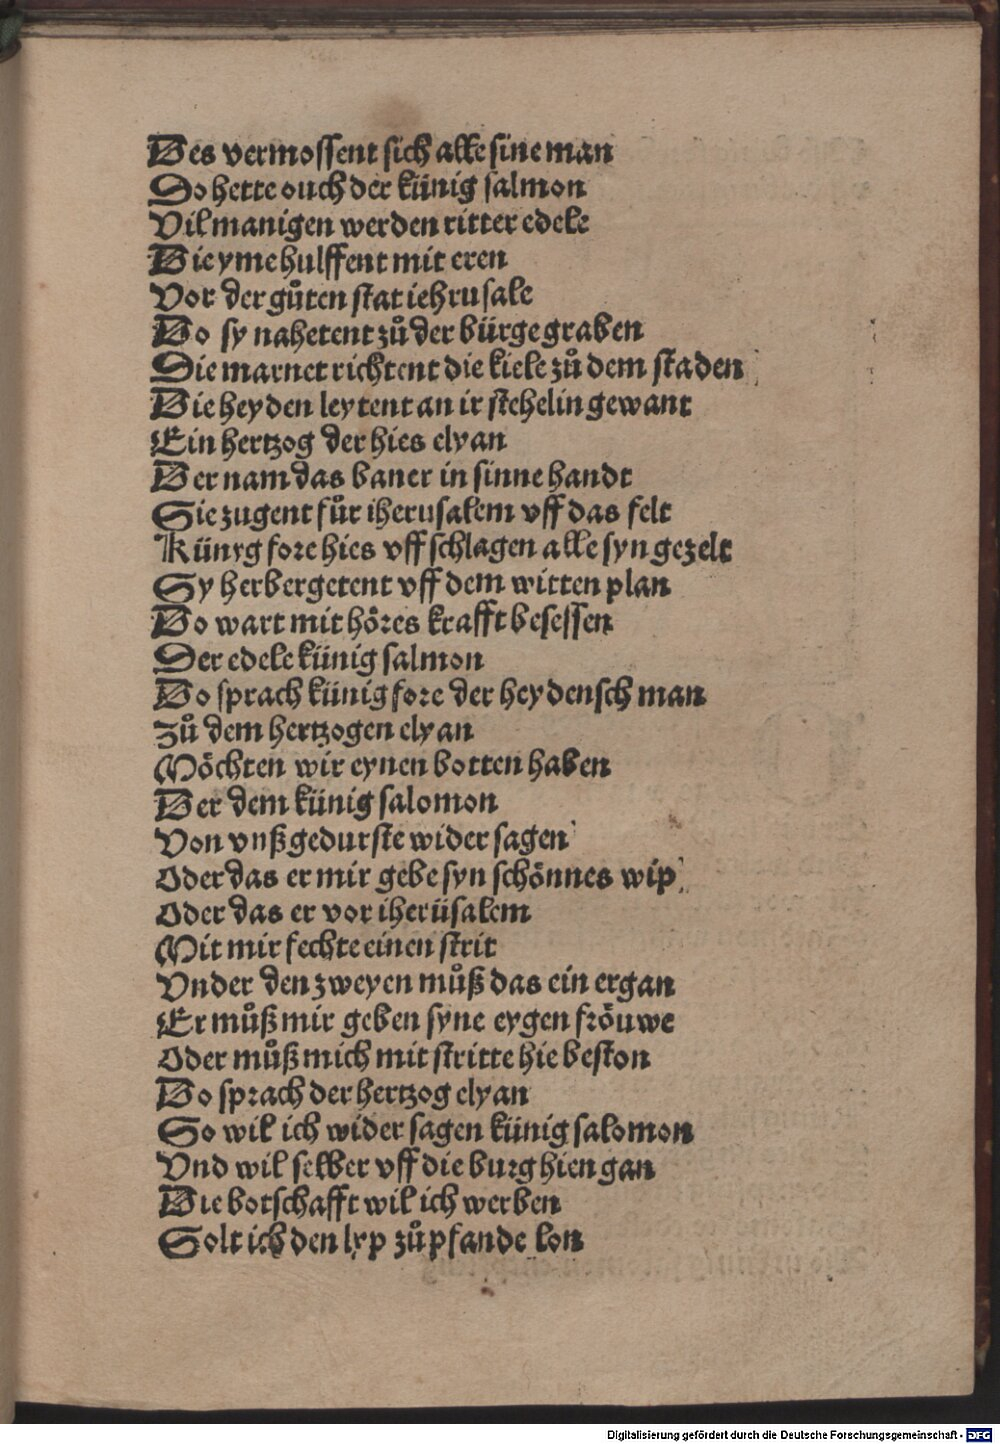 Des vermossent sich alle sine man
So hette ouch der künig salmon
Vil manigen werden ritter edele
Die yme hulffent mit eren
Vor der gůten stat iehrusale
Do sy nahetent zů der bürge graben
Die marnet richtent die kiele zů dem staden
Die heyden leytent an ir stehelin gewant
Ein hertzog der hies elyan
Der nam das baner in sinne handt
Sie zugent fůr iherusalem vff das felt
Künyg fore hies vff schlagen alle syn gezelt
Sy herbergetent vff dem witten plan
Do wart mit höres krafft besessen
Der edele künig salmon
Do sprach künig fore der heydensch man
zů dem hertzogen elyan
Möchten wir eynen botten haben
Der dem künig salomon
Von vnß gedurste wider sagen
Oder das er mir gebe syn schönnes wip
Oder das er vor iherüsalem
Mit mir fechte einen strit
Vnder den zweyen můß das ein ergan
Er můß mir geben syne eygen fröuwe
Oder můß mich mit stritte hie beston
Do sprach der hertzog elyan
So wil ich wider sagen künig salomon
Vnd wil selber vff die burg hien gan
Die botschafft wil ich werben
Solt ich den lyp zů pfande lon
Digitalisierung gefördert durch die Deutsche Forschungsgemeinschaft - DFG